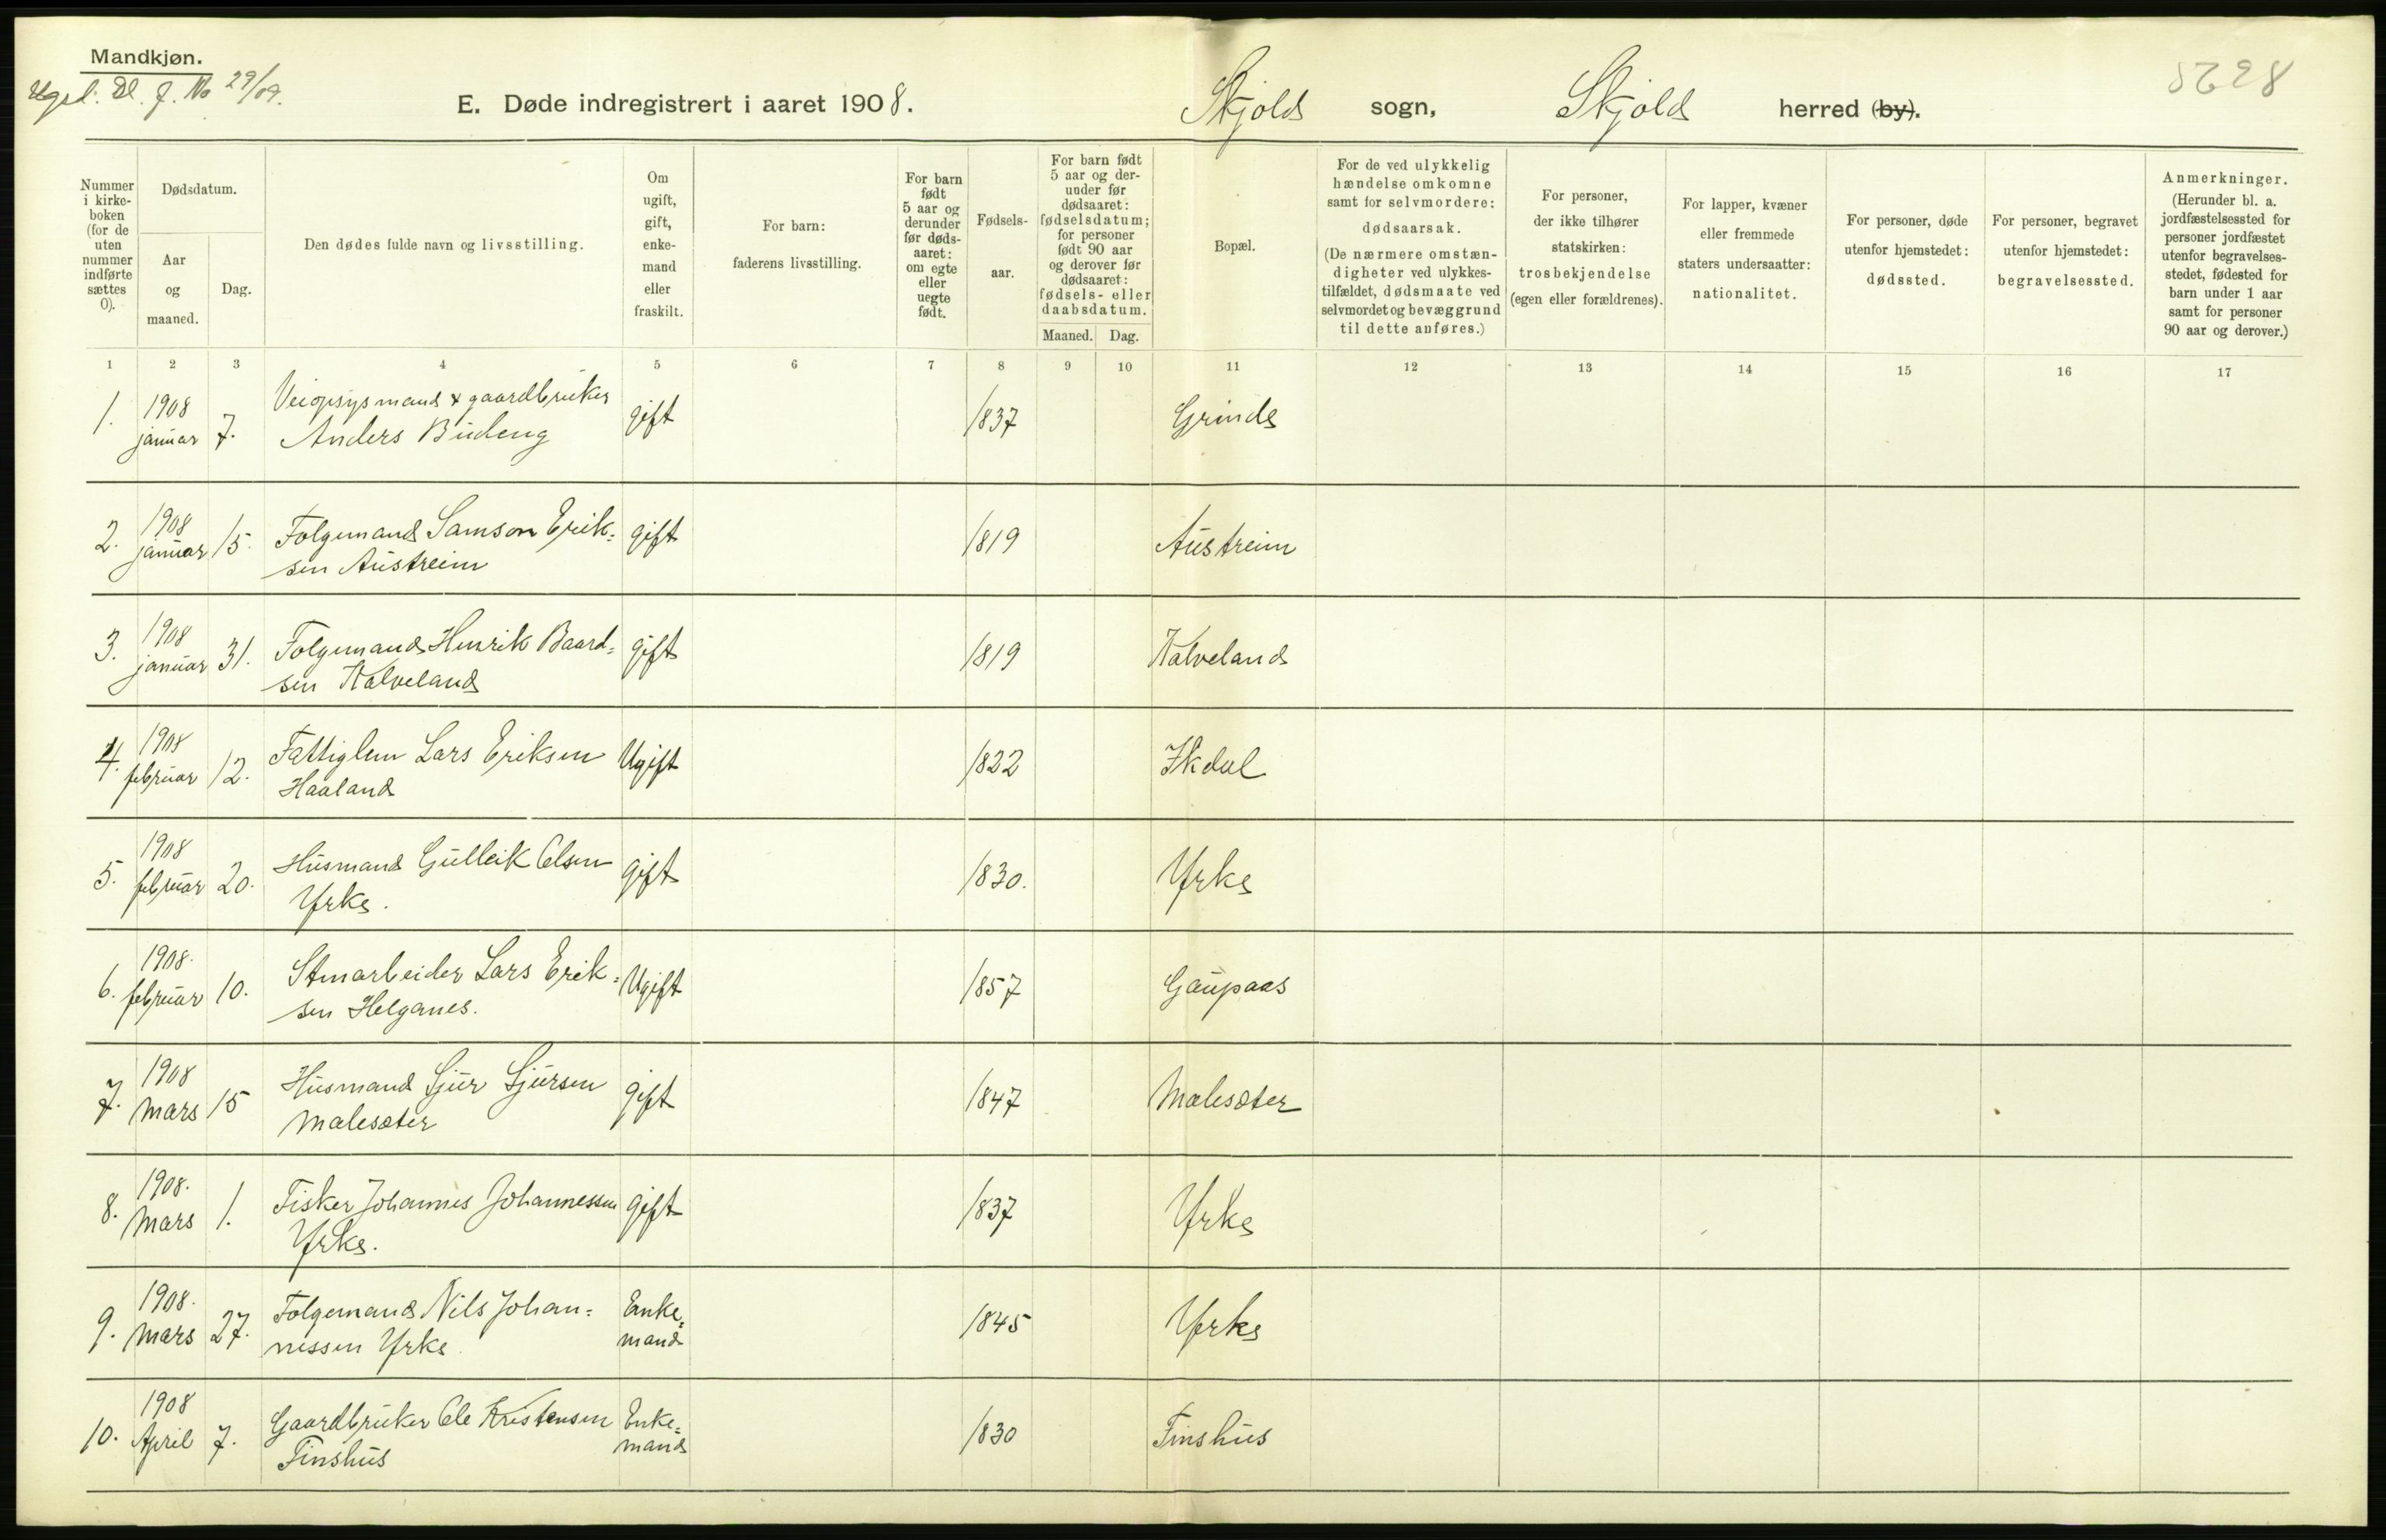 Mandkjøn.
29/09.
E. Døde indregistrert i aaret 1908.
Skjold sogn, Skjold herred (by).
Nummer i kirke- boken (for de uten nummer indførte sættes 0).
Dødsdatum.
Aar og maaned.
Dag.
Den dødes fulde navn og livsstilling.
Om ugift, gift, enke- mand eller fraskilt.
For barn: faderens livsstilling.
For barn født 5 aar og derunder før døds- aaret: om egte eller uegte født.
Fødsels- aar.
For barn født 5 aar og der- under før dødsaaret: fødselsdatum; for personer født 90 aar og derover før dødsaaret: fødsels- eller daabsdatum.
Maaned. Dag.
Bopæl.
For de ved ulykkelig hændelse omkomne samt for selvmordere: dødsaarsak. (De nærmere omstæn- digheter ved ulykkes- tilfældet, dødsmaate ved selvmordet og bevæggrund til dette anføres.)
For personer, der ikke tilhører statskirken: trosbekjendelse (egen eller forældrenes).
For lapper, kvæner eller fremmede staters undersaatter: nationalitet.
For personer, døde utenfor hjemstedet: dødssted.
For personer, begravet utenfor hjemstedet: begravelsessted.
Anmerkninger. (Herunder bl. a. jordfæstelsessted for personer jordfæstet utenfor begravelses- stedet, fødested for barn under 1 aar samt for personer 90 aar og derover.)
1 2 3 4 5 6 7 8 9 10 11 12 13 14 15 16 17
1. 1908 januar 7. Veiopsysmand & gaardbruker Anders Budeng gift 1837 Grinde
2. 1908 januar 15. Folgemand Samson Erik= sen Austreim gift 1819 Austreim
3. 1908 januar 31. Folgemand Henrik Baard= sen Kalveland gift 1819 Kalveland
4. 1908 februar 12. Fattiglem Lars Eriksen Haaland Ugift 1822 Ikdal
5. 1908 februar 20. Husmand Gulleik Olsen Yrke. gift 1830. Yrke
6. 1908. februar 10. Stenarbeider Lars Erik= sen Helganes. Ugift 1857 Gaupaas
7. 1908 Mars 15 Husmand Sjur Sjursen Malesæter gift 1847 Malesæter
8. 1908. Mars 1. Fisker Johannes Johannessen Yrke. gift 1837 Yrke
9. 1908. Mars 27. Folgemand Nils Johan= nessen Yrke Enke= mand 1845 Yrke
10. 1908 April 7. Gaardbruker Ole Kristensen Tinshus Enke= mand 1830 Tinshus